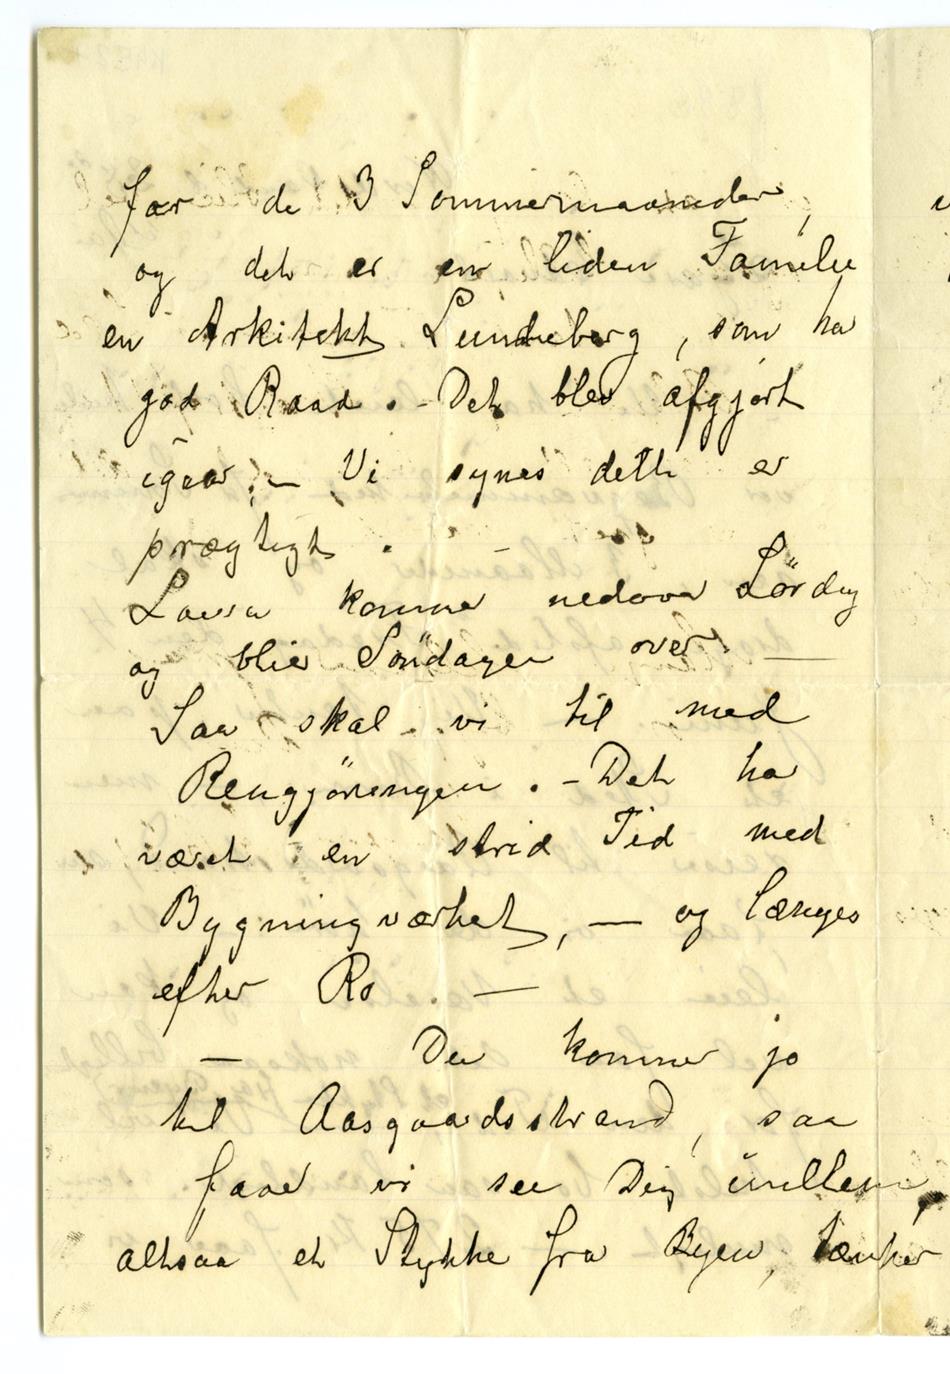 for de 3 Sommermaaneder,
og det er en liden Familie
en Arkitekt Lundeberg, som ha
god Raad. - Det blev afgjort
igaar, - Vi synes dette er
prægtigt. -
Laura kommer nedover Lördag
og blir Söndagen over -
Saa skal vi til med
Rengjöringen. - Det ha
været en strid Tid med
Bygningværket, - og længes
efter Ro. -
- Du kommer jo
til Aasgaardsstrand, saa
faar vi see Dig imellem,
altsaa et Stykke fra Byen, tænker